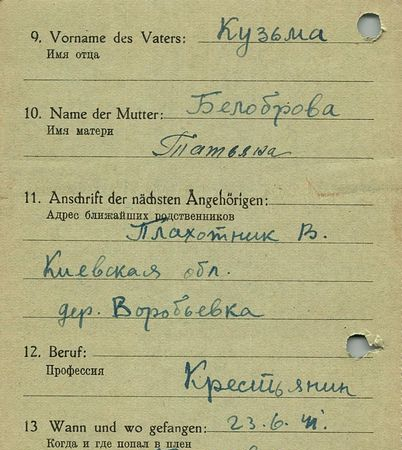 9. Vorname des Vaters: Кузьма
Имя отца
10. Name der Mutter: Белоброва
Имя матери
Татьяна
11. Anschrift der nächsten Angehörigen:
Адрес ближайших родственников
Плахотник В.
Киевская обл.
дер. Воробьевка
12. Beruf:
Профессия
Крестьянин
13 Wann und wo gefangen: 23.6.41.
Когда и где попал в плен